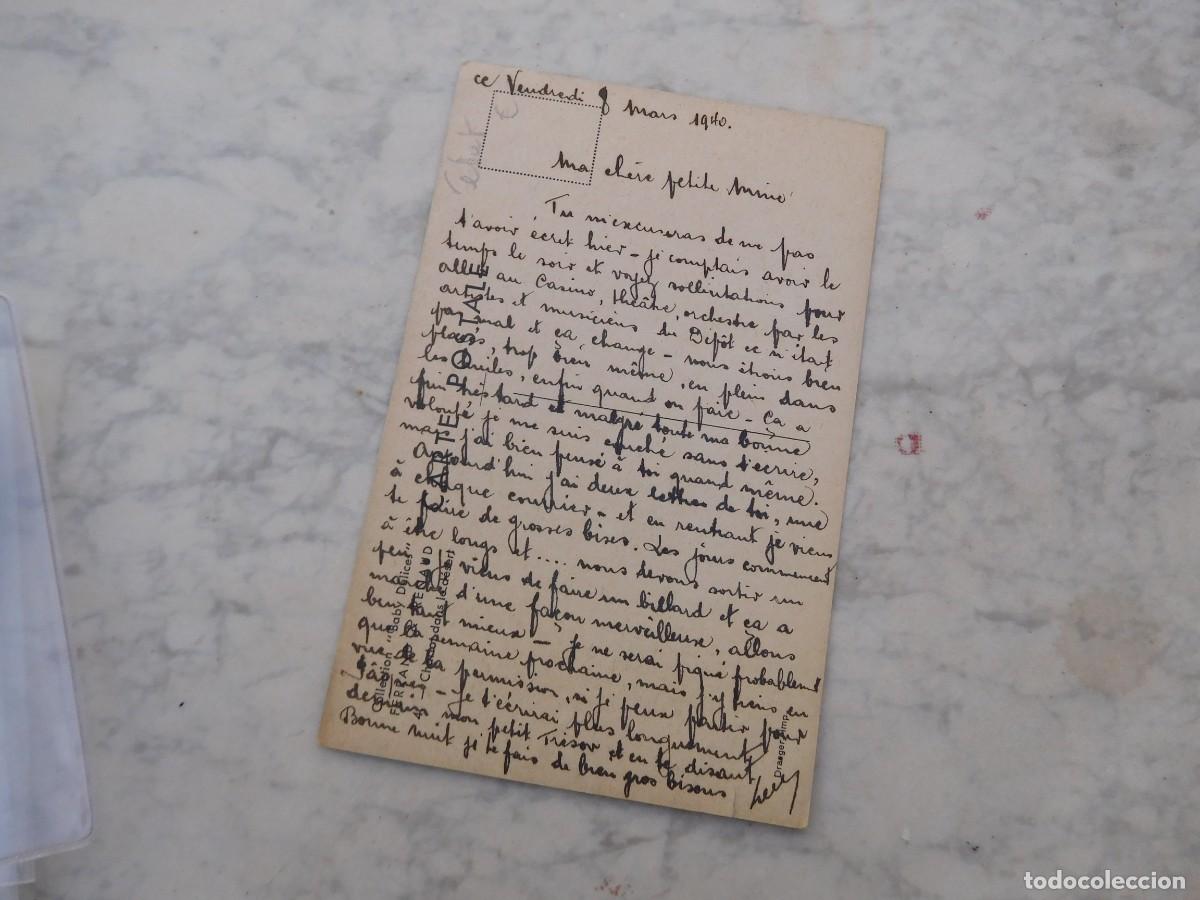 ce Vendredi 8 Mars 1940.
Ma chère petite Mimie
Tu m'excuseras de ne pas
t'avoir écrit hier – je comptais avoir le
temps le soir et voyez sollicitations pour
aller au Casino, théâtre, orchestre par les
artistes et musiciens du Dépôt ce n'était
pas mal et ça change – nous étions bien
placés, trop bien même, en plein dans
les huiles, enfin quand on paie – Ça a
fini très tard et malgré toute ma bonne
volonté je me suis couché sans t'écrire,
mais j'ai bien pensé à toi quand même.
Aujourd'hui j'ai deux lettres de toi, une
à chaque courrier – et en rentrant je viens
te faire de grosses bises. Les jours commencent
à être longs et .... nous devons sortir un
peu viens de faire un billard et ça a
marché d'une façon merveilleuse, allons
ben tant mieux – je ne serai piqué probablement
que la semaine prochaine, mais j'y tiens en
vue de la permission, si je peux partir pour
Pâques – je t'écrirai plus longuement
demain mon petit Trésor et en te disant
Bonne nuit je te fais de bien gros bisous
CARTE POSTALE
Collection "Baby Délices"
FERNAND
dans le désert
Draeger imp.
todocoleccion